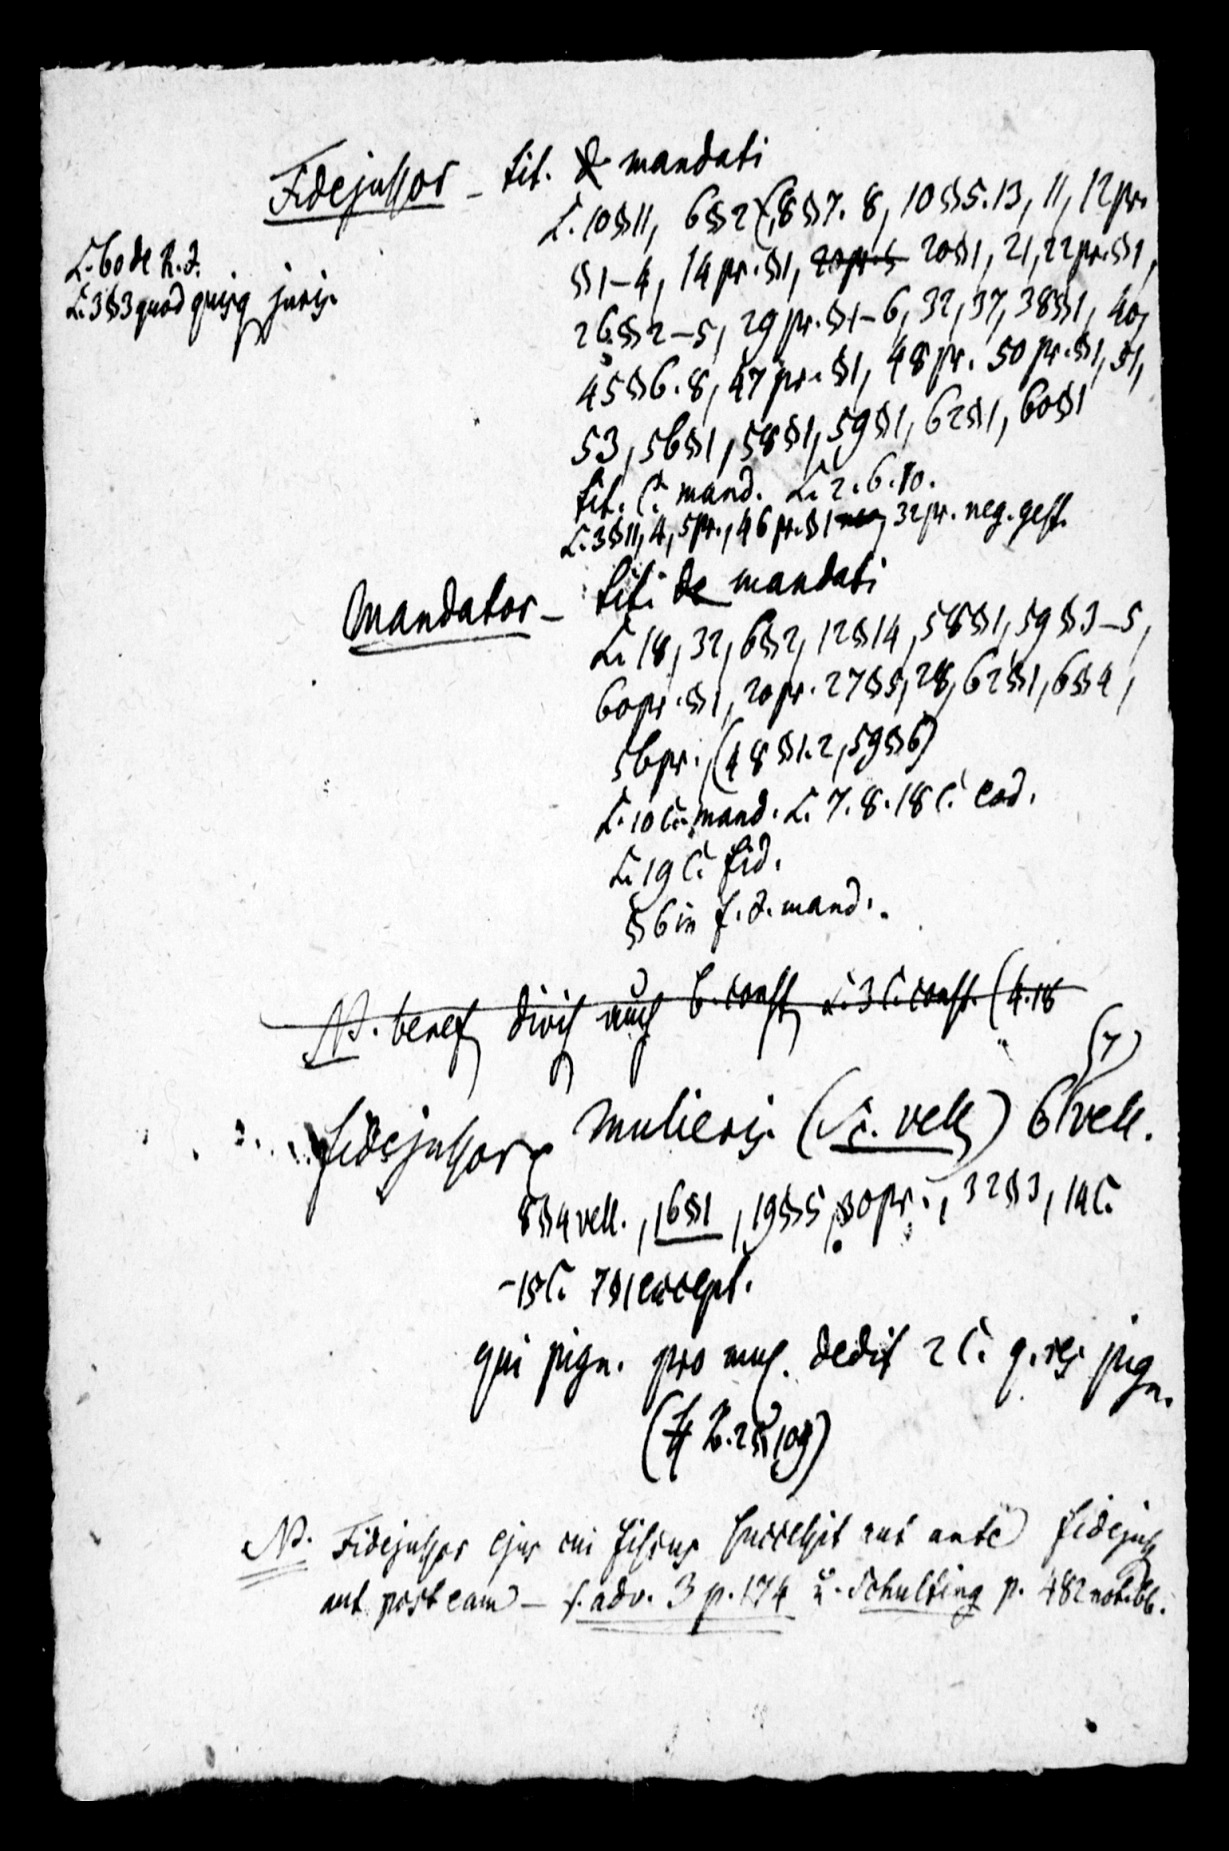 Fidejussor – tit. mandati
L. 10 § 11, 6 § 2 (, 8 § 7. 8, 10 § 5. 13, 11, 12 pr.
L. 60 de R. J.
L. 3 § 3 quod quisq juris.
§ 1–4, 14 pr. § 1, 20 pr. § 20 § 1, 21, 22 pr. § 1,
26. § 2–5, 29 pr. § 1–6, 32, 37, 38 § 1, 40,
45 § 6. 8, 47 pr. § 1, 48 pr. 50 pr. § 1, 51,
53, 56 § 1, 58 § 1, 59 § 1, 62 § 1, 60 § 1
tit. C. mand. L. 2. 6. 10.
L. 3 § 11, 4, 5 pr., 46 pr. § 1 neg 32 pr. neg. gest.
Mandator – tit. de mandati
L. 18, 32, 6 § 2, 12 § 14, 58 § 1, 59 § 3–5,
60 pr. § 1, 20 pr. 27 § 5, 28, 62 § 1, 6 § 4,
56 pr., (48 § 1. 2, 59 § 6)
L. 10 C. mand. L. 7. 8. 18 C. eod.
L. 19 C. fid.
§ 6 in f. J. mand.
NB. benef divis auch b. const L. 3 C. const. (4. 18
(7)
fidejussor mulieris (Sc. vell) 6 vell.
8 § 4 vell., 16 § 1, 19 § 5, 30 pr., 32 § 3, 14 C.
– 15 C. 7 § 1 except.
qui pign. pro mul. dedit 2 C. q. res pign.
(2 § 109)
NB. Fidejussor ejus cui filius successit aut ante fidejuss
aut postea – s. adv. 3 p. 174 u. Schulting p. 482 not. 66.